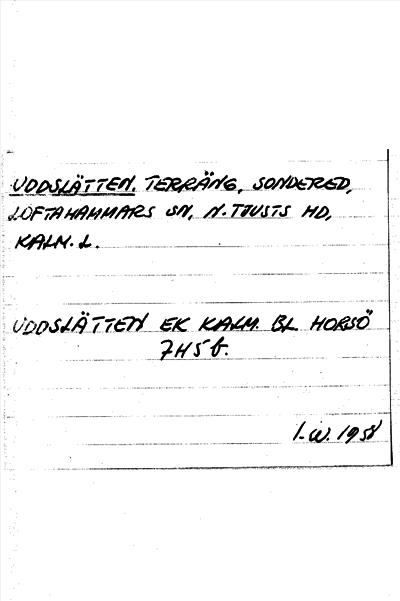 UDDSLÄTTEN. TERRÄNG, SONDERED,
LOFTAHAMMARS SN, N. TJUSTS HD,
KALM. L.
UDDSLÄTTEN EK KALM. BL HORSÖ
7H5f.
I-W. 1958